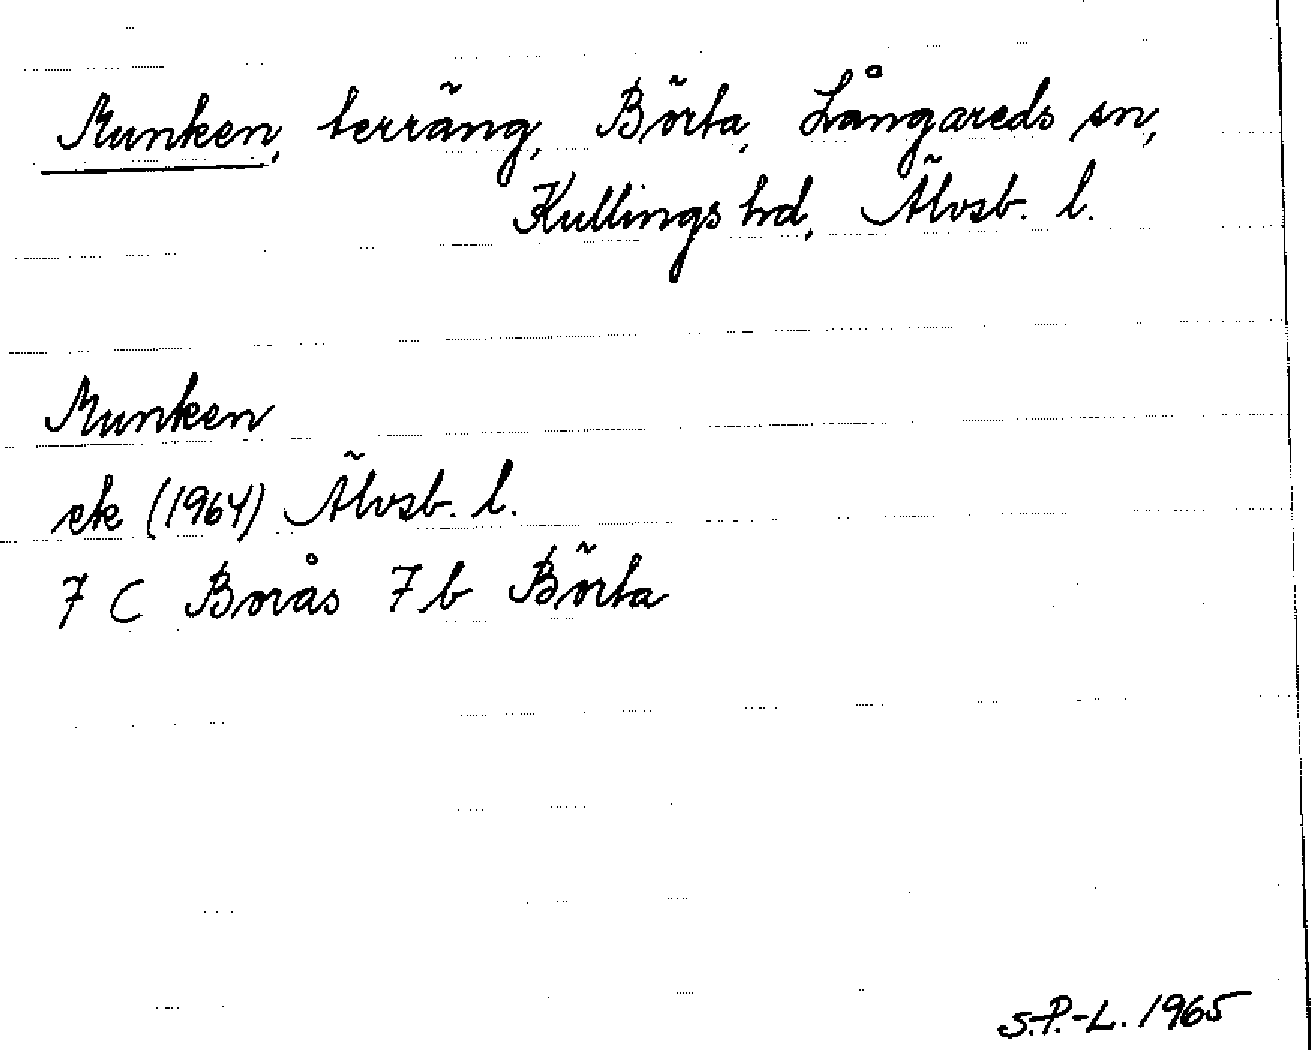 Munken, terräng, Börta, Långareds sn,
Kullings hd, Älvsb. l.
Munken
ek (1964) Älvsb. l.
7 C Borås 7 b Börta
S.P.-L. 1965